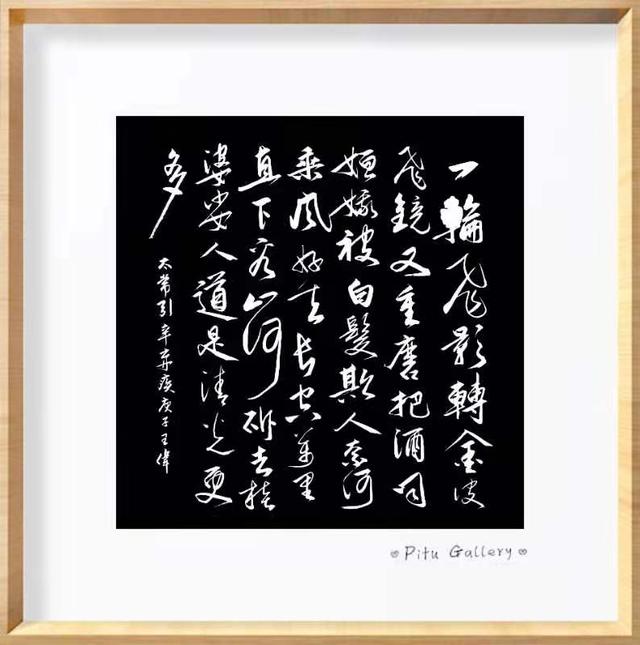 一輪飛影轉金波
飛鏡又重磨把酒問
姮娥被白髮欺人奈何
乘風好去長空萬里
直下看山河斫去桂
婆娑人道是清光更
多
太常引辛弃疾庚子王偉
Pitu Gallery